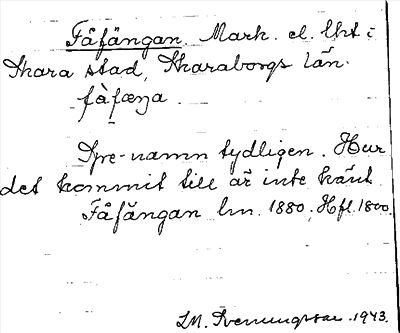 Fåfängan. Mark. el. lht i
Skara stad, Skaraborgs län.
fàfæŋa.
-namn tydligen. Hur
det kommit till är inte känt.
Fåfängan lm. 1880, Hfl 1800.
LM. Svenungsson. 1943.